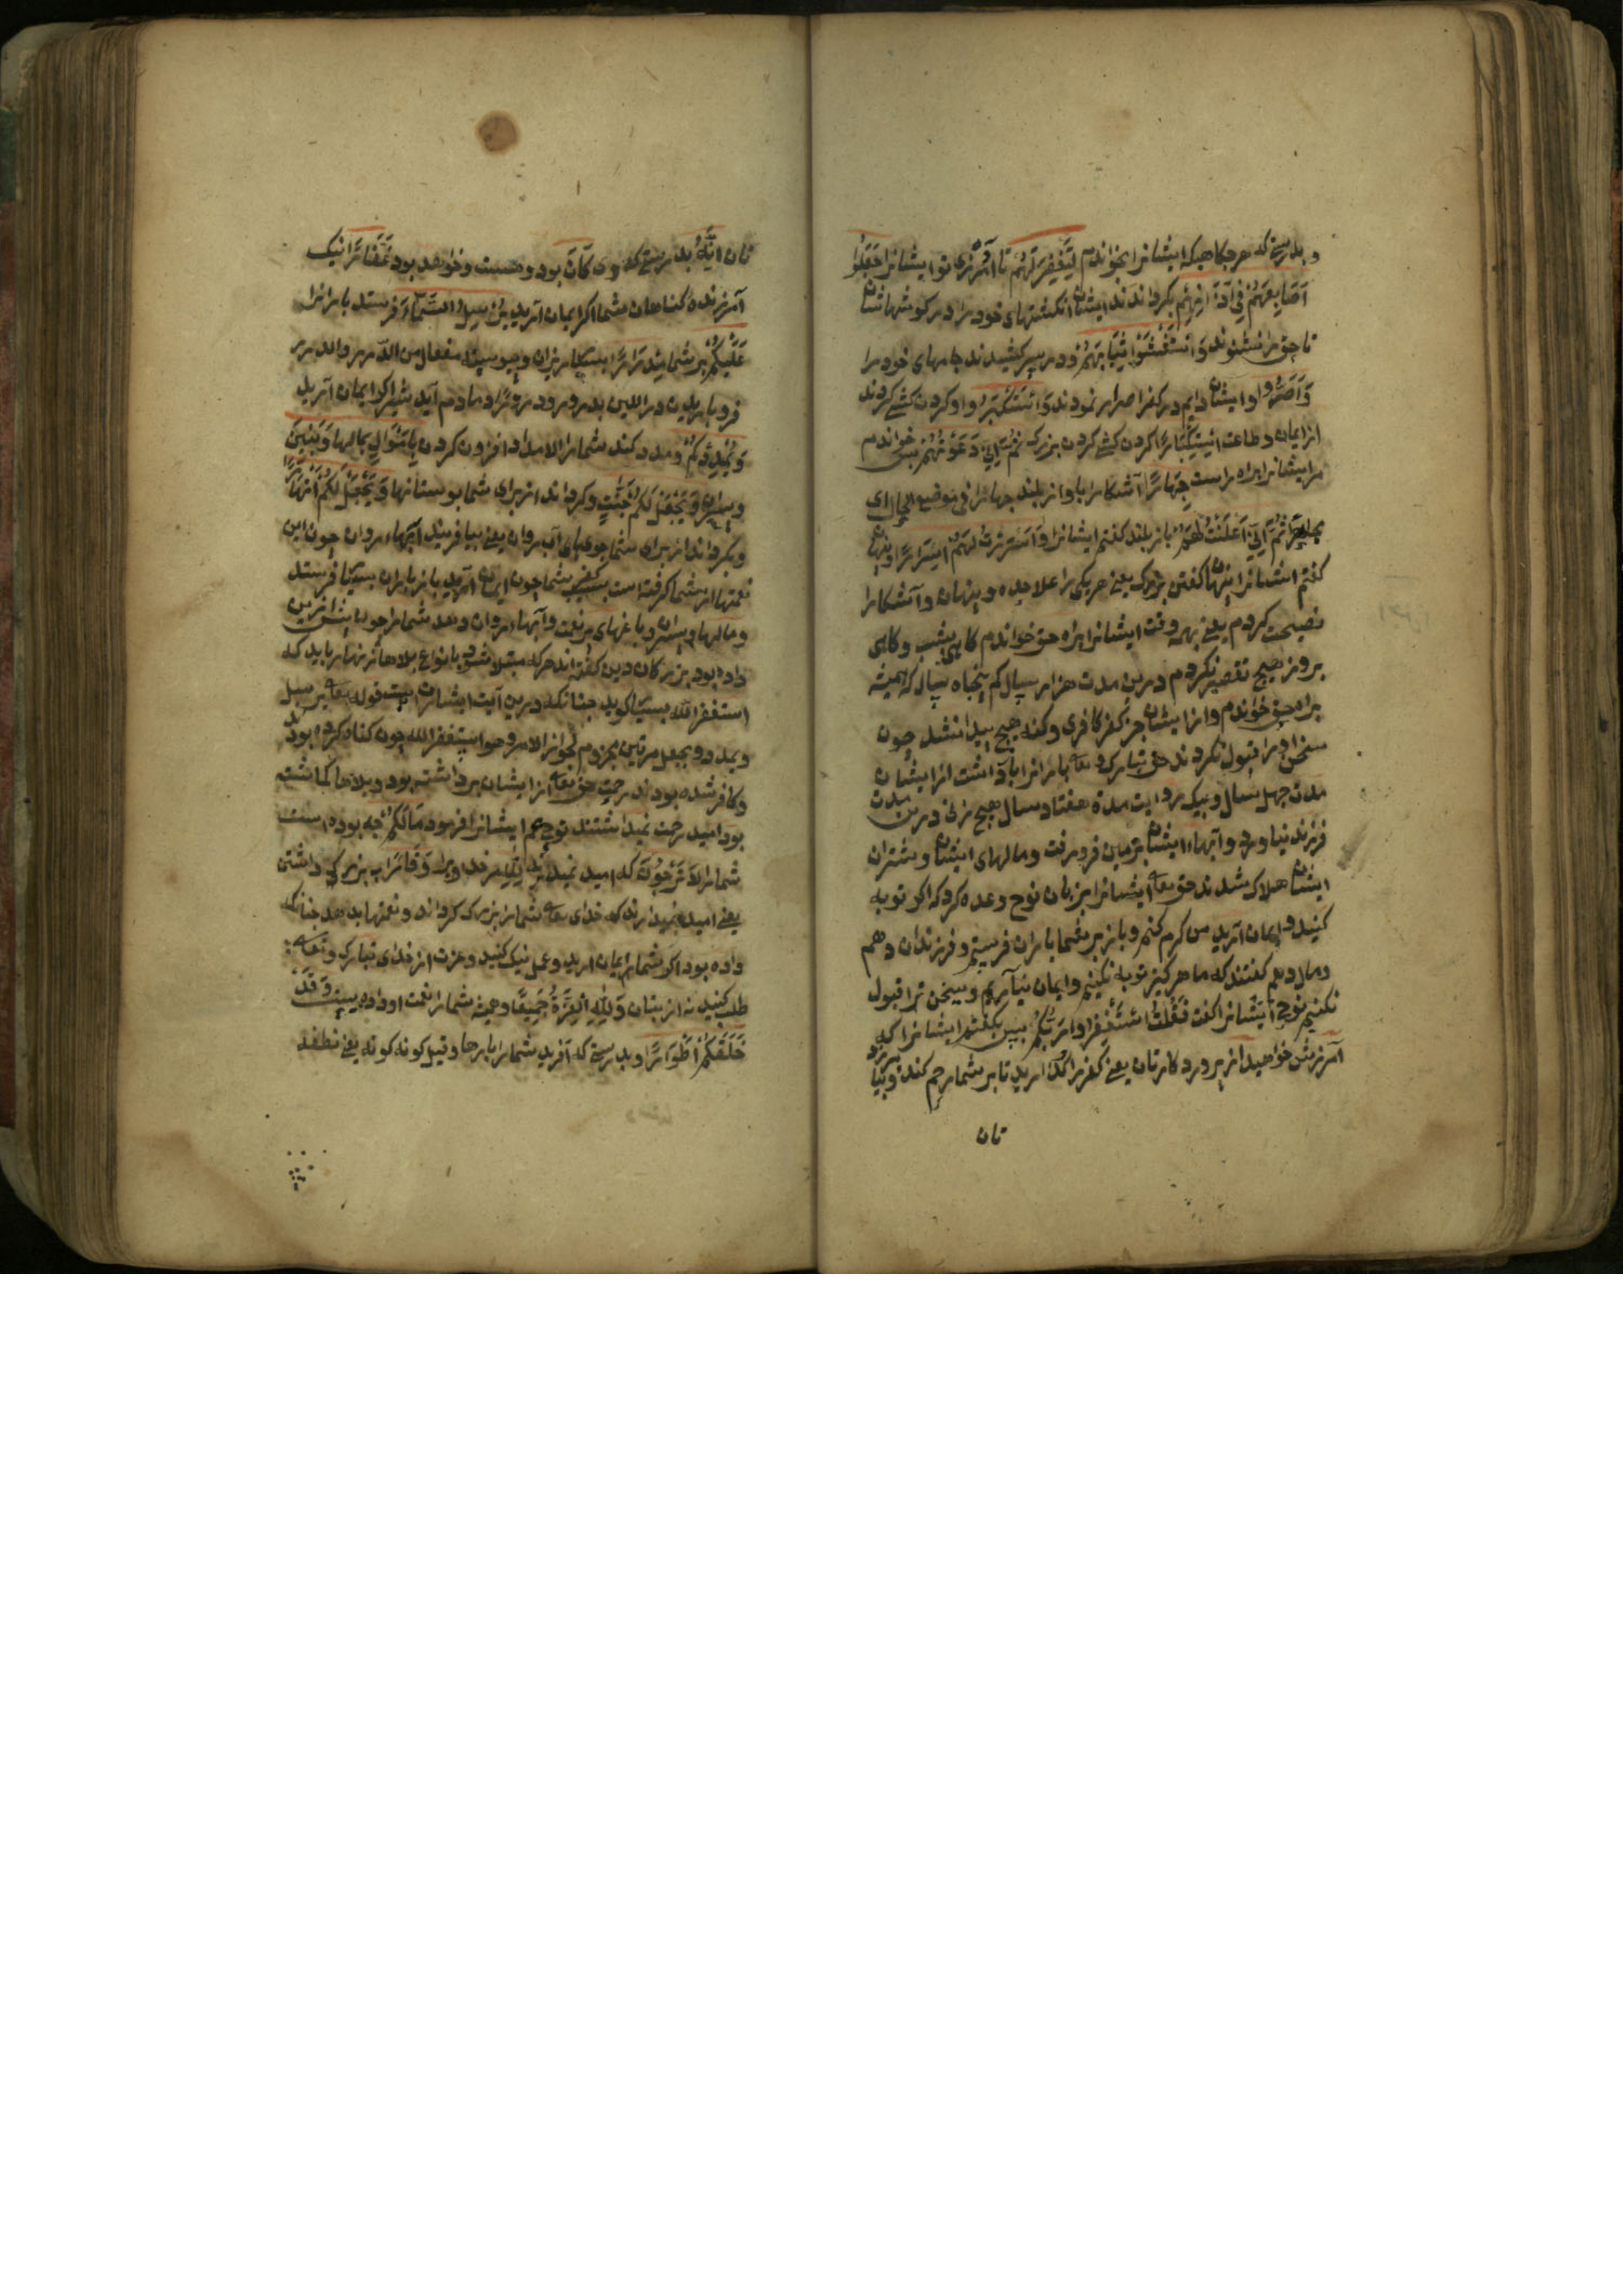 و بدرستی که هر جکاهیکه ایشانرا بخواندم لِتَغْفِرَ لَهُمْ تا آمرزی تو ایشانرا جَعَلُوا
اَصَابِعَهُمْ فِي آذَانِهِمْ بکردانند ایشان انکشتهای خود را در کوشهاشان
تا حق را نشنوند وَاسْتَغْشَوْا ثِيَابَهُمْ و در سر کشیدند جامهای خود را
وَاَصَرُّوا و ایشان دایم در کفر اصرار نمودند وَاسْتَكْبَرُوا و کردن کشی کردند
از ایمان و طاعت اسْتِكْبَارًا کردن کشی کردن بزرک ثُمَّ اِنِّي دَعَوْتُهُمْ پس خواندم
مر ایشانرا براه راست جِهَارًا آشکارا باواز بلند جهارا فی موضع الحال ای
مجاهرا ثُمَّ اِنِّي اَعْلَنْتُ لَهُمْ باز بلند کفتم ایشانرا وَاَسْرَرْتُ لَهُمْ اِسْرَارًا و پنهان
کفتم ایشانرا پنهان کفتن بزرک یعنی هر یکی را علاحده و پنهان و آشکارا
نصیحت کردم یعنی بهر وقت ایشانرا براه حق خواندم کاهی بشب و کاهی
بروز هیچ تقصیر نکردم درین مدت هزار سال کم پنجاه سال که همیشه
براه حق خواندم و از ایشان جز کفر کافری و کنه هیچ پیدا نشد چون
سخن او را قبول نکردند حق تبارک و تعالی بارانرا باز داشت از ایشان
مدت چهل سال و بیک روایت مدة هفتاد سال هیچ زنی درین مدت
فرزند نیاورد و آبهاء ایشان بزمین فرو رفت و مالهای ایشان و شتران
ایشان هلاک شدند حق تعالی ایشانرا بزبان نوح وعده کرد که اکر توبه
کنید و ایمان آرید من کرم کنم و باز بر شما باران فرستم و فرزندان دهم
و مال دهم کفتند که ما هرکیز توبه نکنیم و ایمان نیآریم و سخن ترا قبول
نکنیم نوح ایشانرا کفت فَقُلْتُ اسْتَغْفِرُوا رَبَّكُمْ پس بکفتم ایشانرا که
آمرزش خواهید از پروردکار تان یعنی کفر را آرید تا بر شما رحم کند و بیامرزد
تان
تان اِنَّهُ بدرستی که وی كَانَ بود و هست و خواهد بود غَفَّارًا نیک
آمرزنده کناهان شما اکر ایمان آرید يُرْسِلِ السَّمَاءَ فرستد بارانرا
عَلَيْكُمْ بر شما مِدْرَارًا بسیار ریزان و پیوسته مفعال من الدر والدرر
فرو باریدن در اللبن بدر و درورا و مادم آید شیر اکر ایمان آرید
وَيُمْدِدْكُمْ و مدد کند شما را الامداد افزون کردن بِاَمْوَالٍ بمالها وَبَنِينَ
و پسران وَيَجْعَلْ لَكُمْ جَنَّاتٍ و کرداند از برای شما بوستانها وَيَجْعَلْ لَكُمْ اَنْهَارًا
و بکرداند از برای شما جویهای آب روان یعنی بیافریند آبهاء روان چون این
نعمتها از شما کرفته است بسبب کفر شما چون ایمان آرید باز باران بسیار فرستد
و مالها و پسران و باغهای پر نعمت و آبهاء روان دهد شما را چون پیش ازین
داده بود بزرکان دین کفته اند هر که مبتلا شود بانواع بلاها زنهار باید که
استغفر الله بسیار کوید چنانکه درین آیت اشارت است قوله تعالی یرسل
و یمدد و یجعل مرتین مجزوم لجواز الامر و هو استغفر الله چون کناه کرده بودند
و کافر شده بودند رحمت حق تعالی از ایشان برداشته بود و بلاها کماشته
بود امید رحمت نمیداشتند نوح عم ایشانرا فرمود مَا لَكُمْ چه بوده است
شما را لَا تَرْجُونَ که امید نمیدارید لِلَّهِ مر خدا ویرا وَقَارًا بزرکی داشتن
یعنی امید نمیدارند که خدای تعالی شما را بزرک کرداند و نعمتها بدهد چنانکه
داده بود اکر شما ایمان ارید و عمل نیک کنید و عزت از خدای تبارک و تعالی
طلب کنید نه از بتان وَلِلَّهِ الْعِزَّةُ جَمِيعًا و همیشه شما را نعمت او داده است وَقَدْ
خَلَقَكُمْ اَطْوَارًا و بدرستی که آفرید شما را بارها و قیل کونه کونه یعنی نطفه